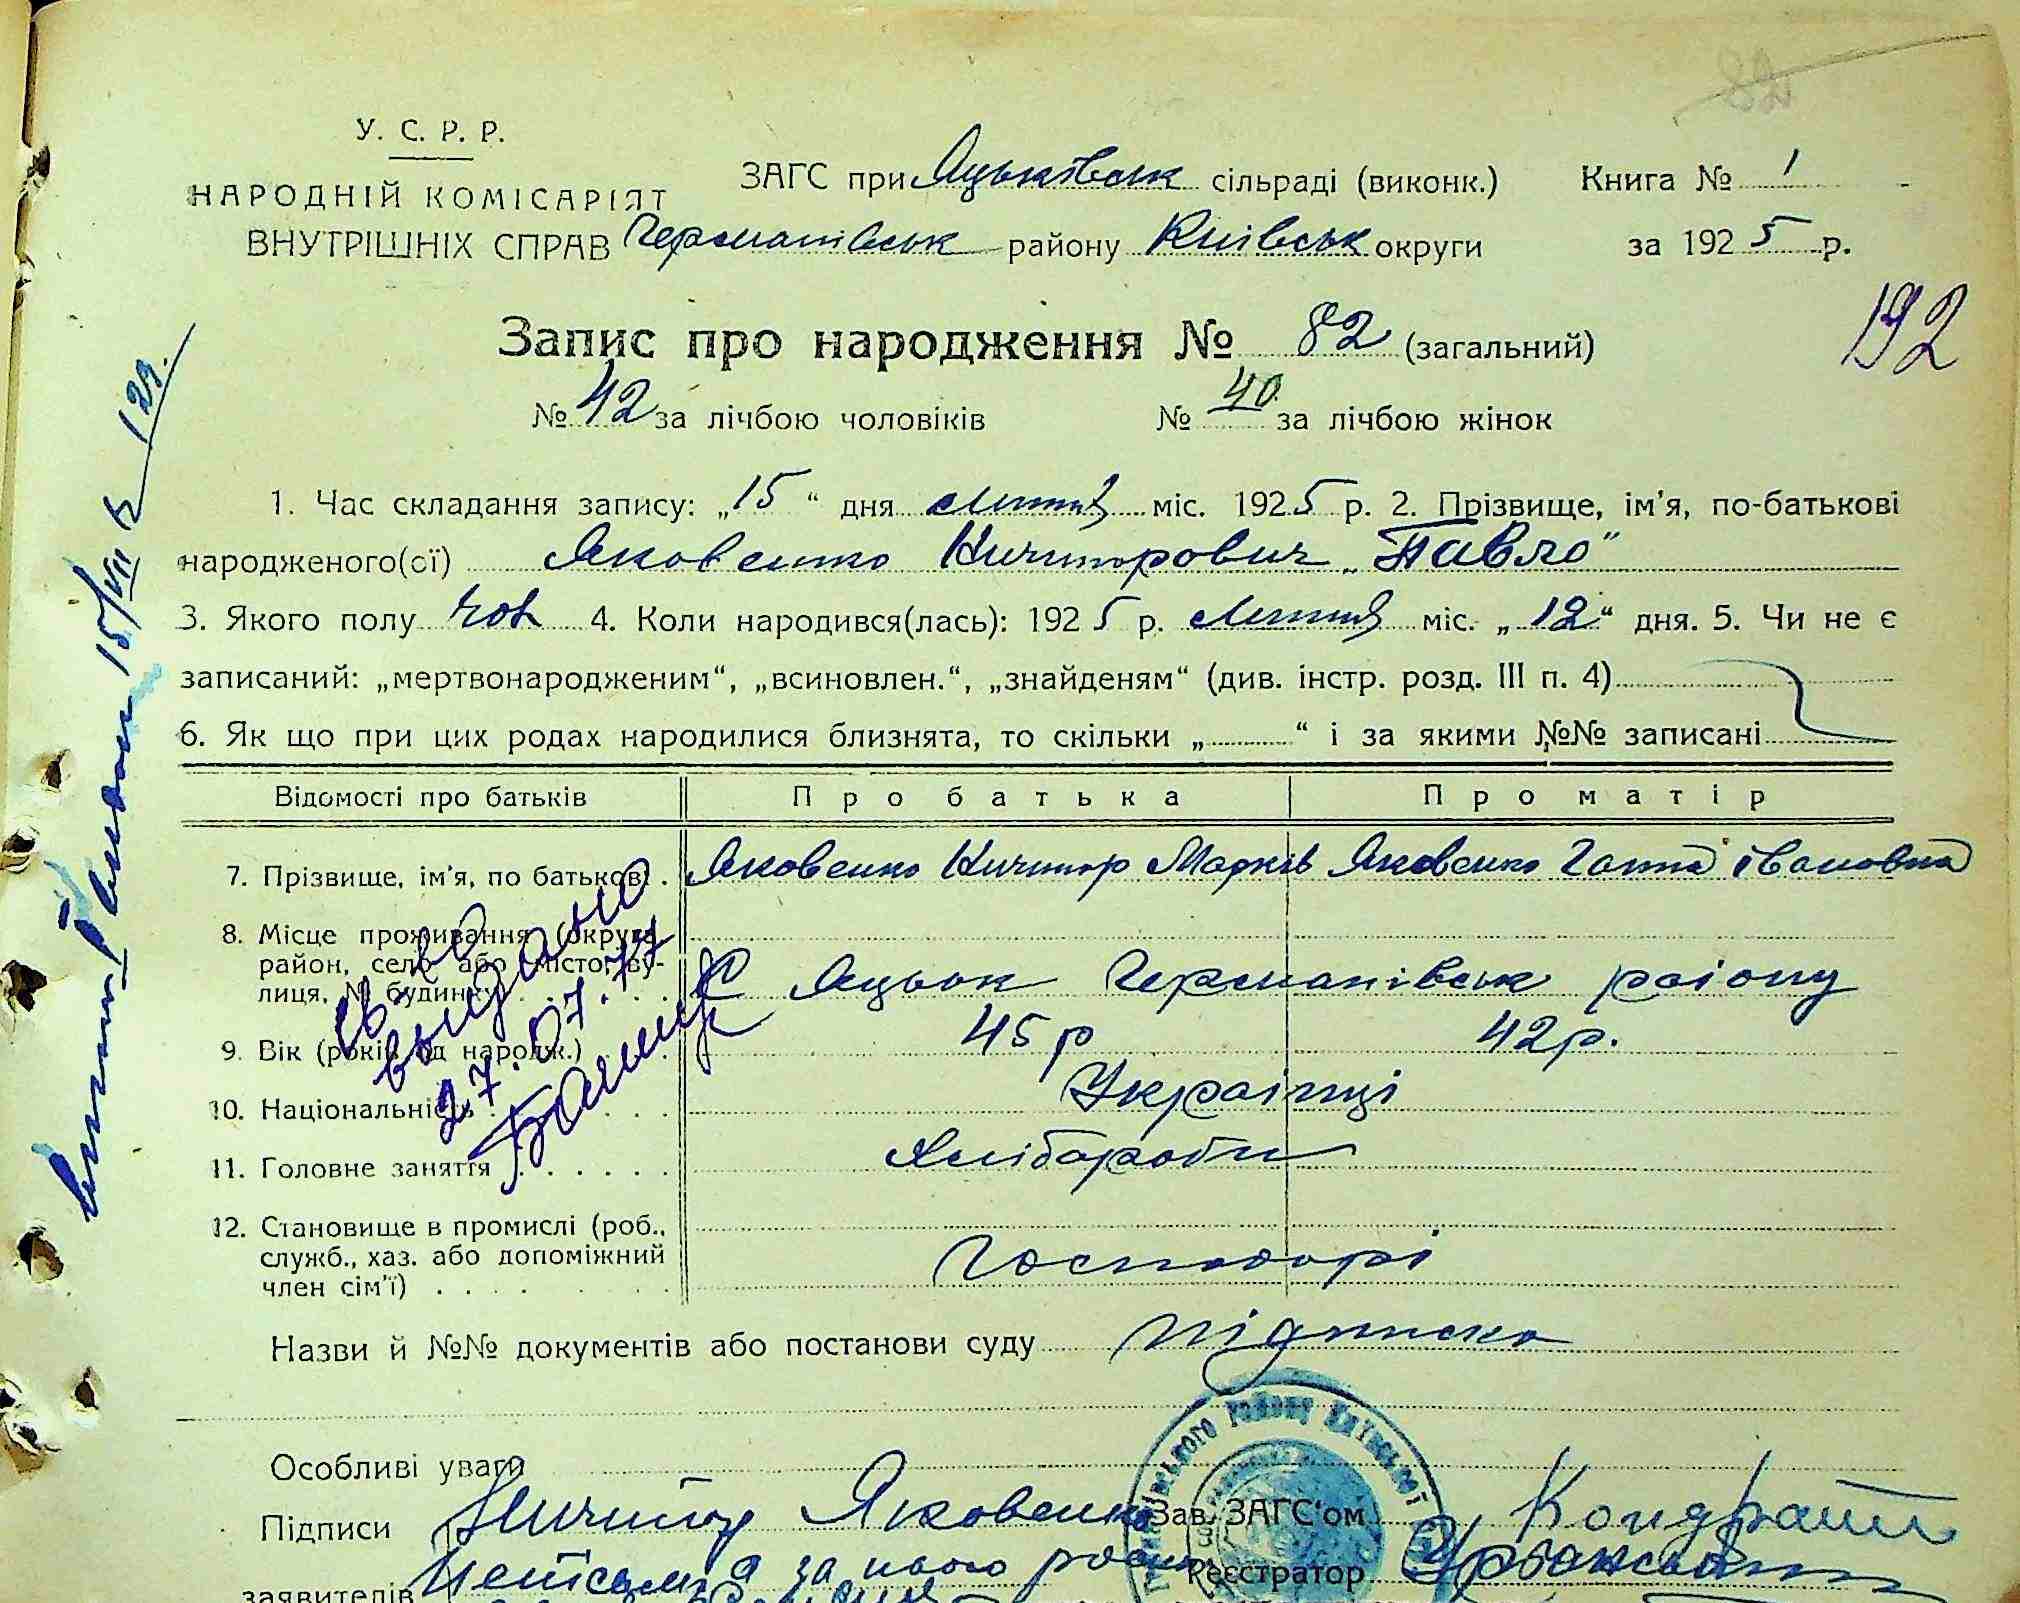 82
У. С. Р. Р.
НАРОДНІЙ КОМІСАРІЯТ
ВНУТРІШНІХ СПРАВ
ЗАГС при Яцьківськ сільраді (виконк.) Книга № 1
Германівськ району Київськ округи за 1925 р.
192
Запис про народження № 82 (загальний)
№ 42 за лічбою чоловіків № 40 за лічбою жінок
1. Час складання запису: „15“ дня лютня міс. 1925 р. 2. Прізвище, ім'я, по-батькові
народженого(ої) Яковенко Ничипорович „Павло“
3. Якого полу чол 4. Коли народився(лась): 1925 р. лютня міс. „12“ дня. 5. Чи не є
записаний: „мертвонародженим“, „всиновлен.“, „знайденям“ (див. інстр. розд. III п. 4)
6. Як що при цих родах народилися близнята, то скільки „ “ і за якими №№ записані
Відомості про батьків Про батька Про матір
7. Прізвище, ім'я, по батькові . Яковенко Ничипор Марків Яковенко Ганна Івановна
8. Місце проживання (округа,
район, село або місто, ву-
лиця, № будинку . . . . С Яцьк Германівськ району
9. Вік (років від народж.) . . . 45 р 42 р.
10. Національність . . . . . Українці
11. Головне заняття . . . . . . Хлібороби
12. Становище в промислі (роб.,
служб., хаз. або допоміжний
член сім'ї) . . . . . . Господарі
Св-во
выдано
27.07.77
Назви й №№ документів або постанови суду підписка
Особливі уваги
Підписи Ничипор Яковенко Зав. ЗАГС'ом Кондрат
заявителів за нього Реєстратор
15/VII